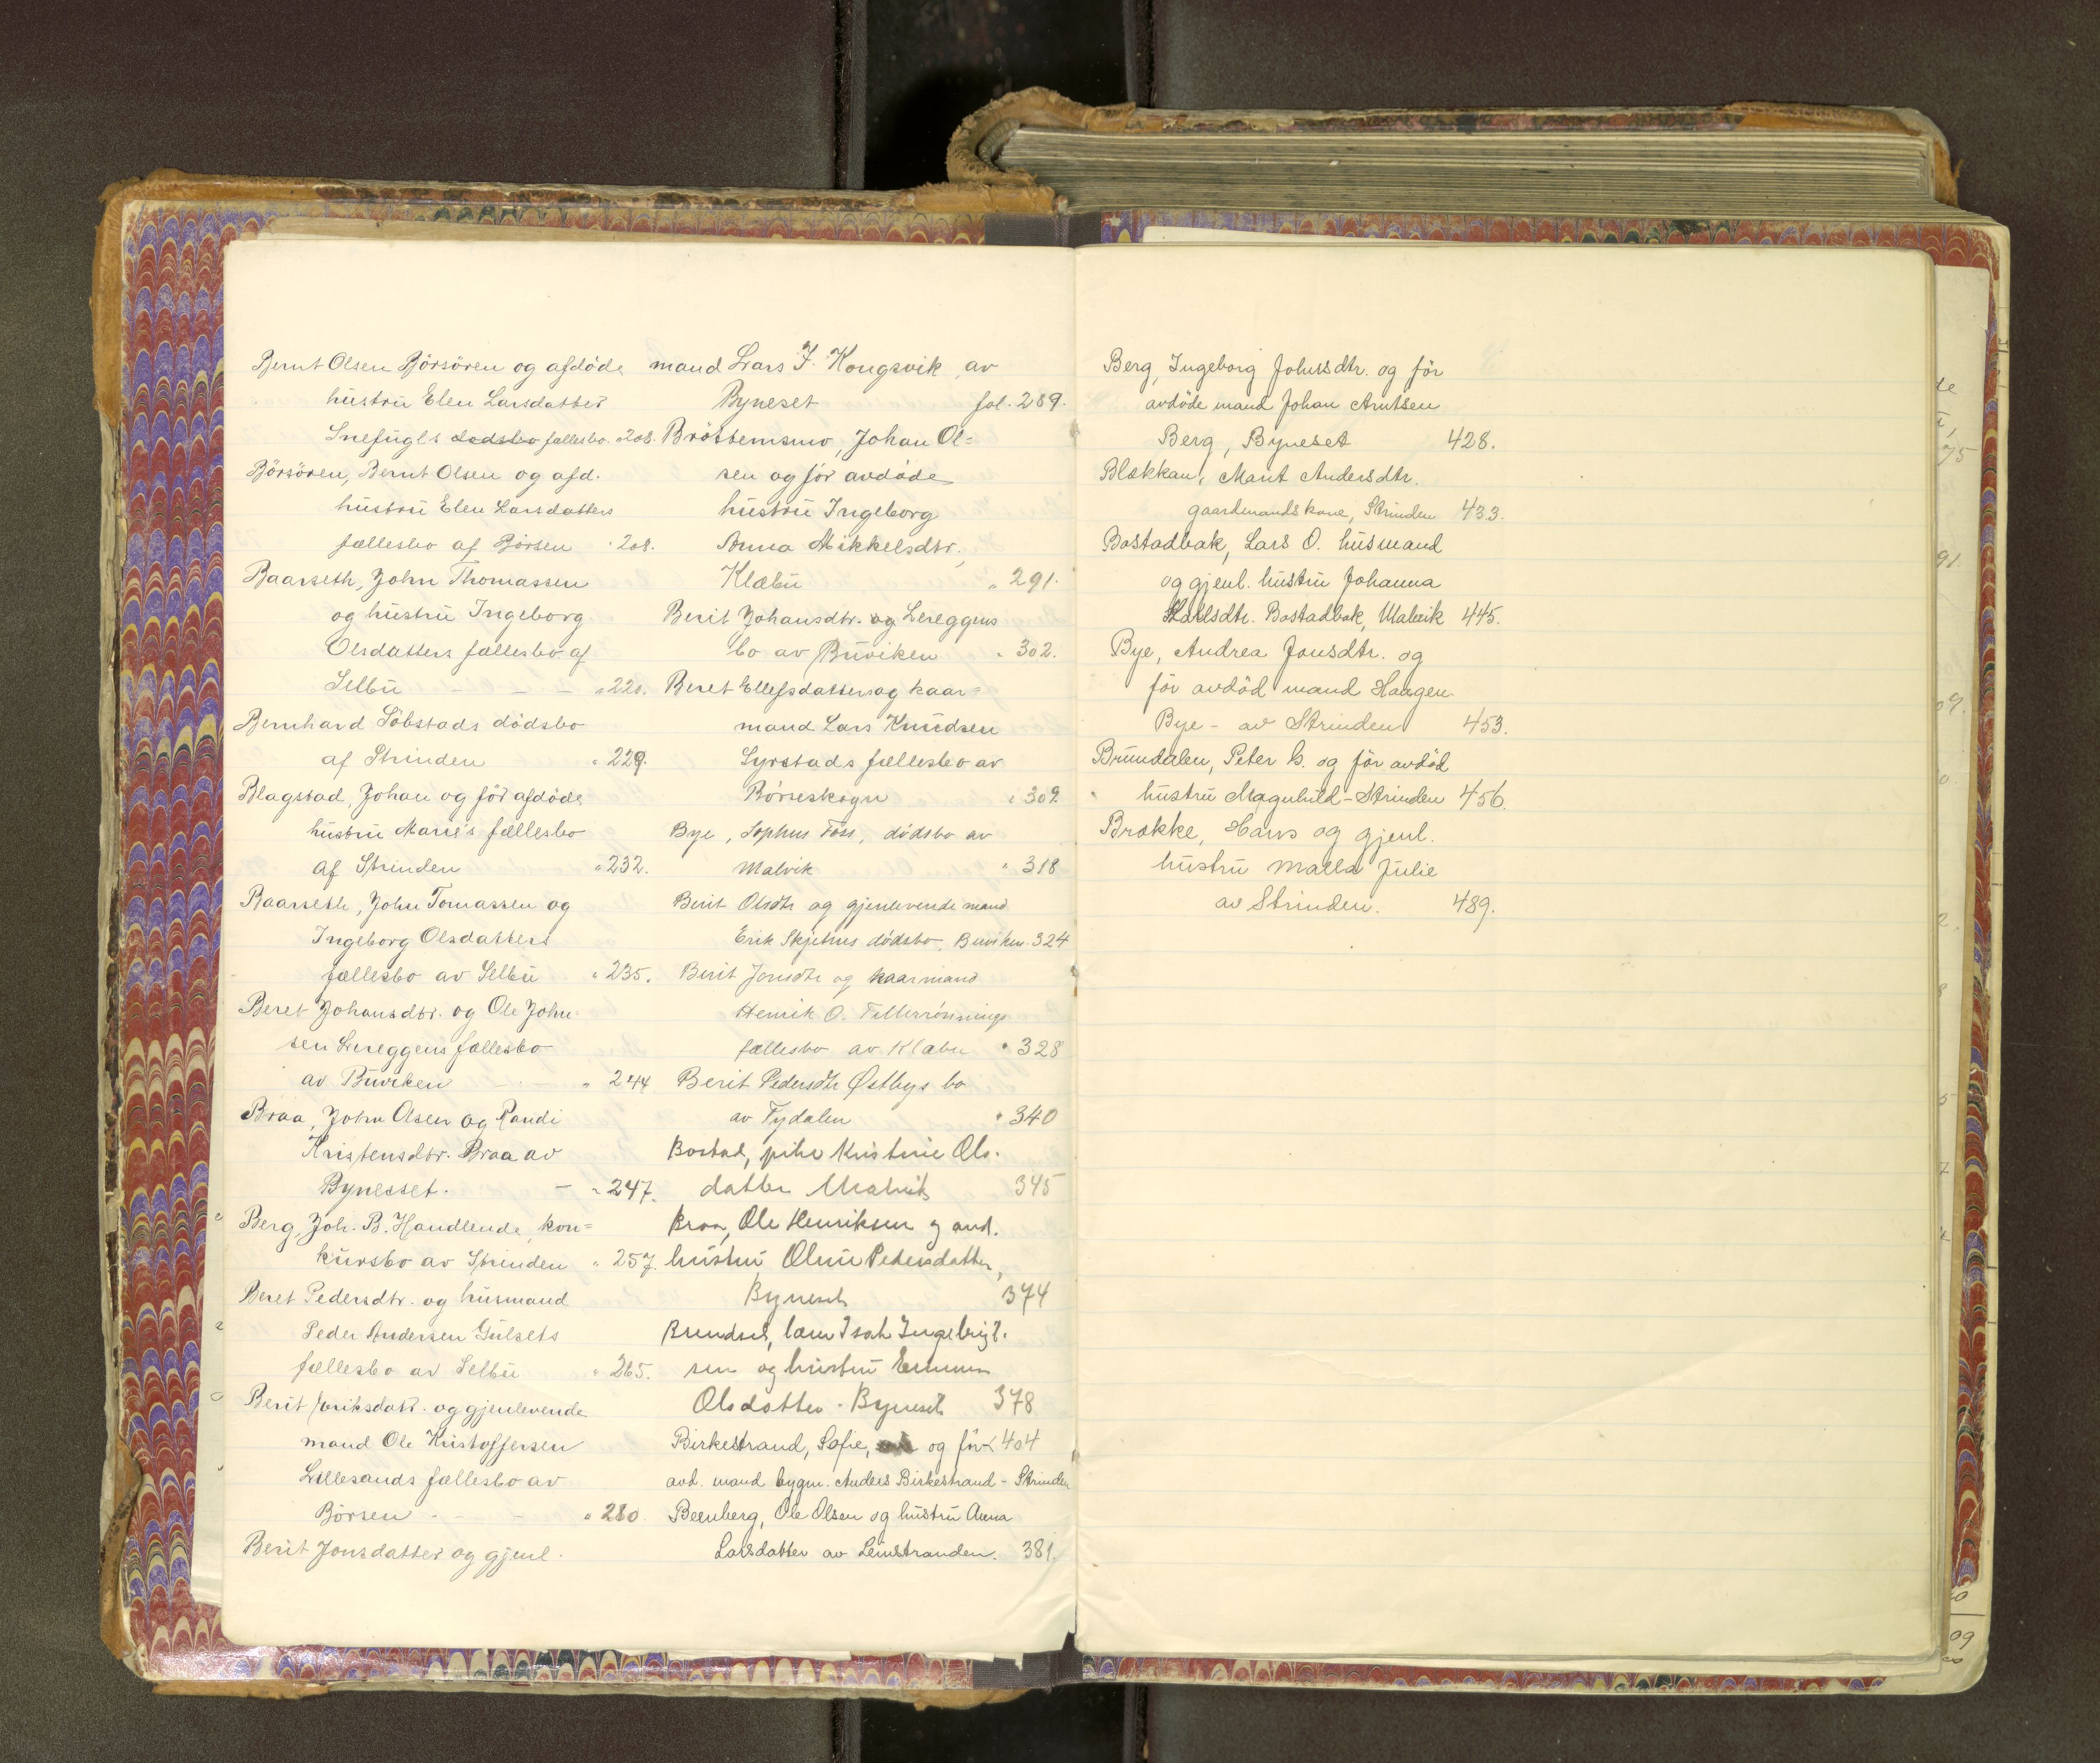 Bernt Olsen Börsören og afdöde
hustru Elen Larsdatter
Snefugls dødsbo fællesbo. " 208.
Börsören, Bernt Olsen og afd.
hustru Elen Larsdatters
fællesbo af Börsen " 208.
Baarseth, John Thomassen
og hustru Ingeborg
Olsdatters fællesbo af
Selbu - - - " 220.
Bernhard Söbstads dödsbo
af Strinden " 229.
Blagstad, Johan og för afdöde
hustru Marie's fællesbo
af Strinden " 232.
Baarseth, John Tomassen og
Ingeborg Olsdatters
fællesbo av Selbu " 235.
Beret Johansdtr. og Ole John-
sen Lereggens fællesbo
av Buviken - - " 244
Braa, John Olsen og Randi
Kristensdtr. Braa av
Bynesset. - " 247.
Berg, Joh. B. Handlende, kon=
kursbo av Strinden " 257.
Beret Pedersdtr. og husmand
Peder Andersen Gulsets
fællesbo av Selbu " 265.
Berit Eriksdatt. og gjenlevende
mand Ole Kristoffersen
Lillesands fællesbo av
Börsen - - - " 280.
Berit Jonsdatter og gjenl.
mand Lars J. Kongsvik av
Byneset fol. 289.
Bröttemsmo, Johan Ol=
sen og för avdöde
hustru Ingeborg
Anna Mikkelsdtr.,
Klæbu " 291.
Berit Johansdtr. og Lereggens
bo av Buviken " 302.
Beret Ellefsdatters og kaar=
mand Lars Knudsen
Syrstads fællesbo av
Börseskogn " 309.
Bye, Sophus Foss, dödsbo av
Malvik " 318
Berit Olsdtr og gjenlevende mand
Erik Skjethus dödsbo, Buviken. 324
Berit Jonsdtr og kaarmand
Henrik O. Tellerrönnings
fællesbo av Klæbu " 328
Berit Pedersdtr Østbys bo
av Tydalen " 340
Bostad, pike Kristine Ols.
datter Malvik 345
Braa, Ole Henriksen og avd.
hustru Oline Pedersdatter,
Byneset 374
Isak Ingebrigt.
sen og hustru
Olsdatter - Byneset 378
Birkestrand, Sofie, og för 404
avd. mand bygm. Anders Birkestrand - Strinden
Beenberg, Ole Olsen og hustru Anna
Larsdatter av Leinstranden. 381.
Berg, Ingeborg Johnsdtr. og för
avdöde mand Johan Arntsen
Berg, Byneset 428.
Blækkan, Marit Andersdtr.
gaardmandskone, Strinden 433.
Bostadbak, Lars O. husmand
og gjenl. hustru Johanna
Karlsdtr. Bostadbak, Malvik 445.
Bye, Andrea Jonsdtr. og
för avdöd mand Haagen
Bye - av Strinden 453.
Brundalen, Peter C. og för avdöd
hustru Magnhild - Strinden 456.
Brække, Hans og gjenl.
hustru Malla Julie
av Strinden. 489.